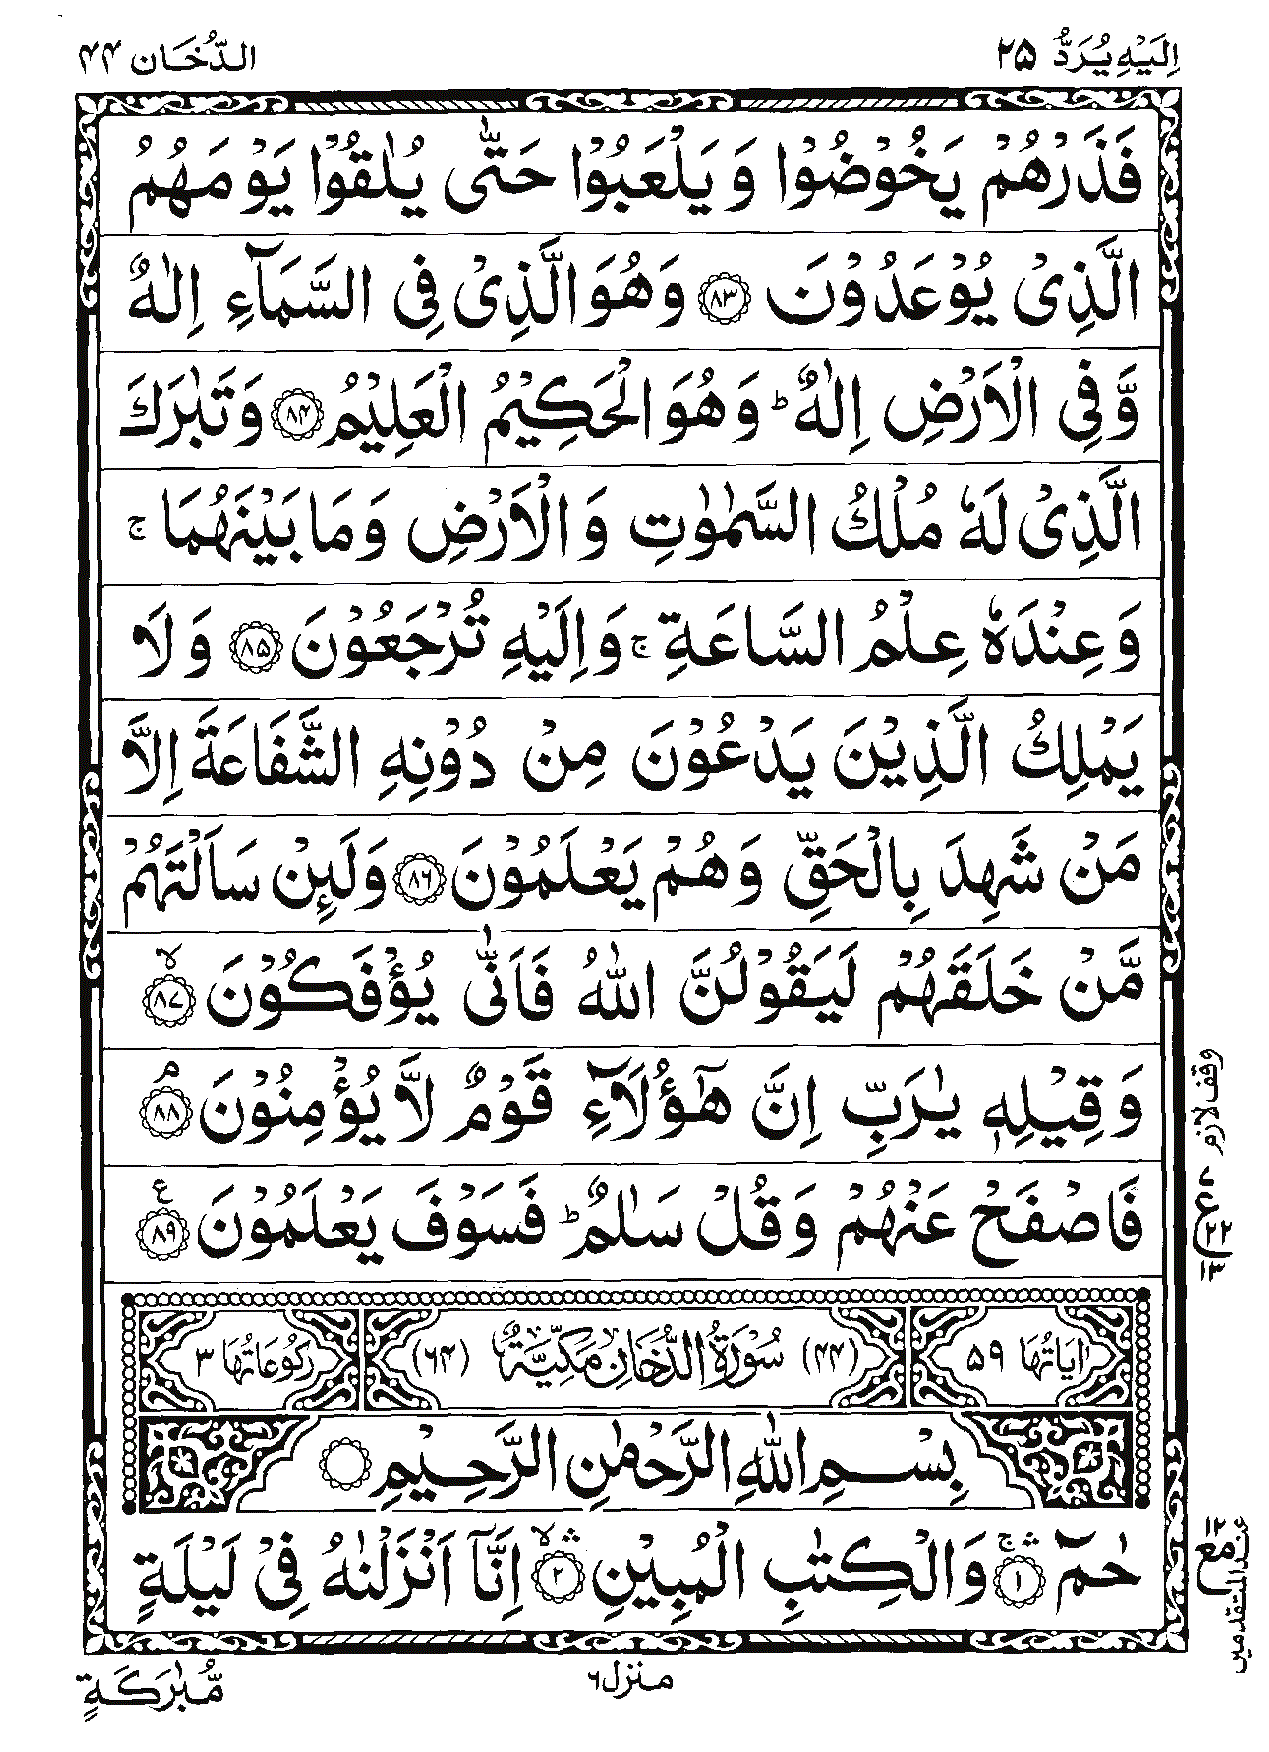 اِلَيْهِ يُرَدُّ ۲۵
الدُّخَان ۴۴
فَذَرْهُمْ يَخُوْضُوْا وَ يَلْعَبُوْا حَتّٰى يُلٰقُوْا يَوْمَهُمُ
الَّذِىْ يُوْعَدُوْنَ ﴿۸۳﴾ وَهُوَ الَّذِىْ فِى السَّمَآءِ اِلٰهٌ
وَّفِى الْاَرْضِ اِلٰهٌ ؕ وَهُوَ الْحَكِيْمُ الْعَلِيْمُ ﴿۸۴﴾ وَتَبٰرَكَ
الَّذِىْ لَهٗ مُلْكُ السَّمٰوٰتِ وَالْاَرْضِ وَمَا بَيْنَهُمَا ۚ
وَعِنْدَهٗ عِلْمُ السَّاعَةِ ۚ وَاِلَيْهِ تُرْجَعُوْنَ ﴿۸۵﴾ وَلَا
يَمْلِكُ الَّذِيْنَ يَدْعُوْنَ مِنْ دُوْنِهِ الشَّفَاعَةَ اِلَّا
مَنْ شَهِدَ بِالْحَقِّ وَهُمْ يَعْلَمُوْنَ ﴿۸۶﴾ وَلَئِنْ سَاَلْتَهُمْ
مَّنْ خَلَقَهُمْ لَيَقُوْلُنَّ اللّٰهُ فَاَنّٰى يُؤْفَكُوْنَ ۙ﴿۸۷﴾
وَقِيْلِهٖ يٰرَبِّ اِنَّ هٰٓؤُلَآءِ قَوْمٌ لَّا يُؤْمِنُوْنَ ۘ﴿۸۸﴾
فَاصْفَحْ عَنْهُمْ وَقُلْ سَلٰمٌ ؕ فَسَوْفَ يَعْلَمُوْنَ ﴿۸۹﴾ ع
وقف لازم
۷ ع ۲۲ ۱۳
اٰيَاتُهَا ۵۹ (۴۴) سُوْرَةُ الدُّخَانِ مَكِّيَّةٌ (۶۴) رُكُوْعَاتُهَا ۳
بِسْمِ اللّٰهِ الرَّحْمٰنِ الرَّحِيْمِ
حٰمٓ ﴿۱﴾ وَالْكِتٰبِ الْمُبِيْنِ ﴿۲﴾ اِنَّآ اَنْزَلْنٰهُ فِىْ لَيْلَةٍ
مع ۱۲ عند المتقدمين
منزل ۶
مُّبٰرَكَةٍ